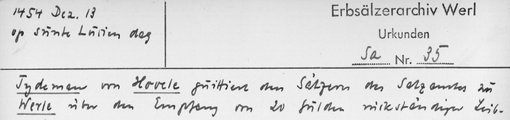 1454 Dez. 13
op sunte Lucien dag
Erbsälzerarchiv Werl
Urkunden
Sa Nr. 35
Tydeman von Hovele quittiert den Sälzern des Salzamtes zu
Werle über den Empfang von 20 Gulden rückständiger Leib-